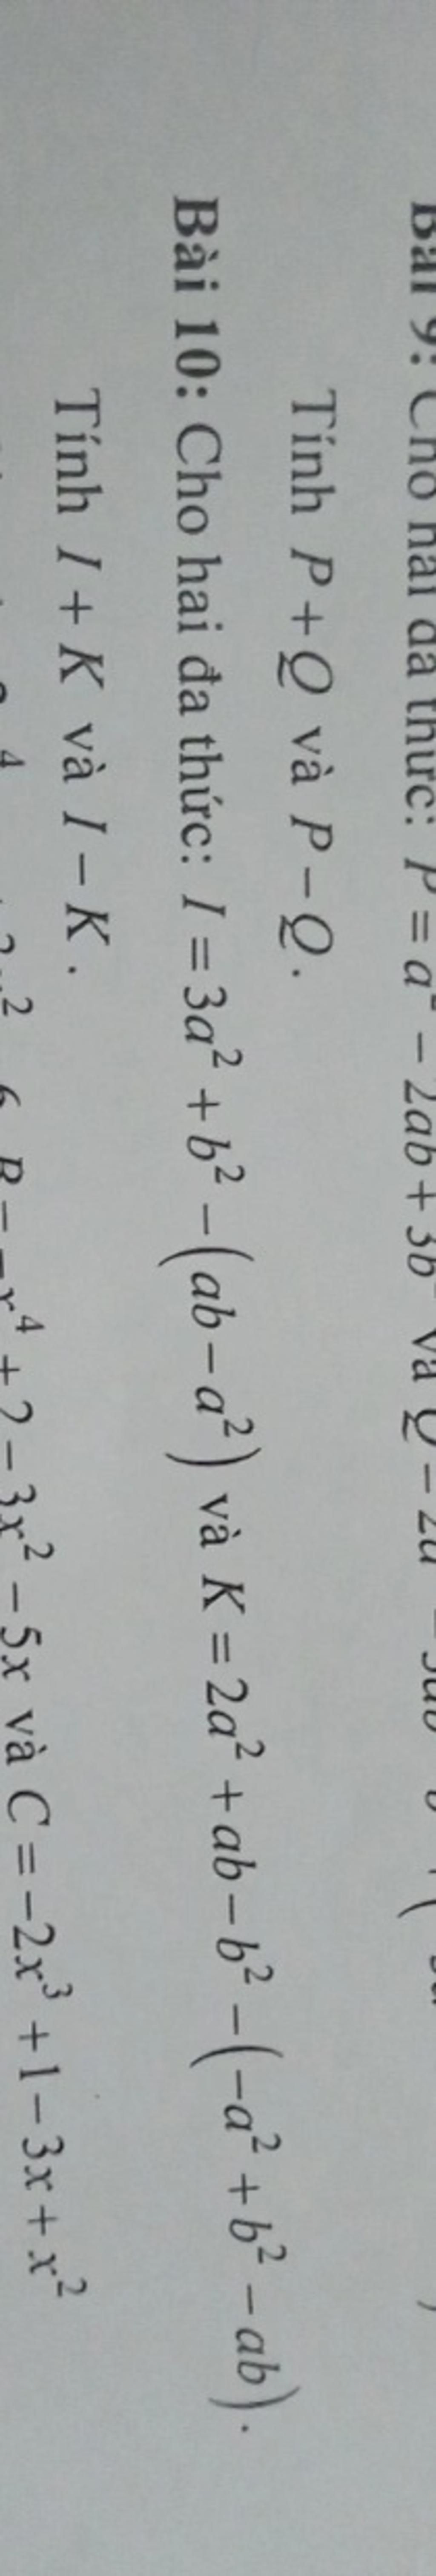 Bài 9: Cho hai đa thức: P = a² − 2ab + 3b² và Q = 2a²
Tính P + Q và P − Q.
Bài 10: Cho hai đa thức: I = 3a² + b² − (ab − a²) và K = 2a² + ab − b² − (−a² + b² − ab).
Tính I + K và I − K.
B = −x⁴ + 2 − 3x² − 5x và C = −2x³ + 1 − 3x + x²